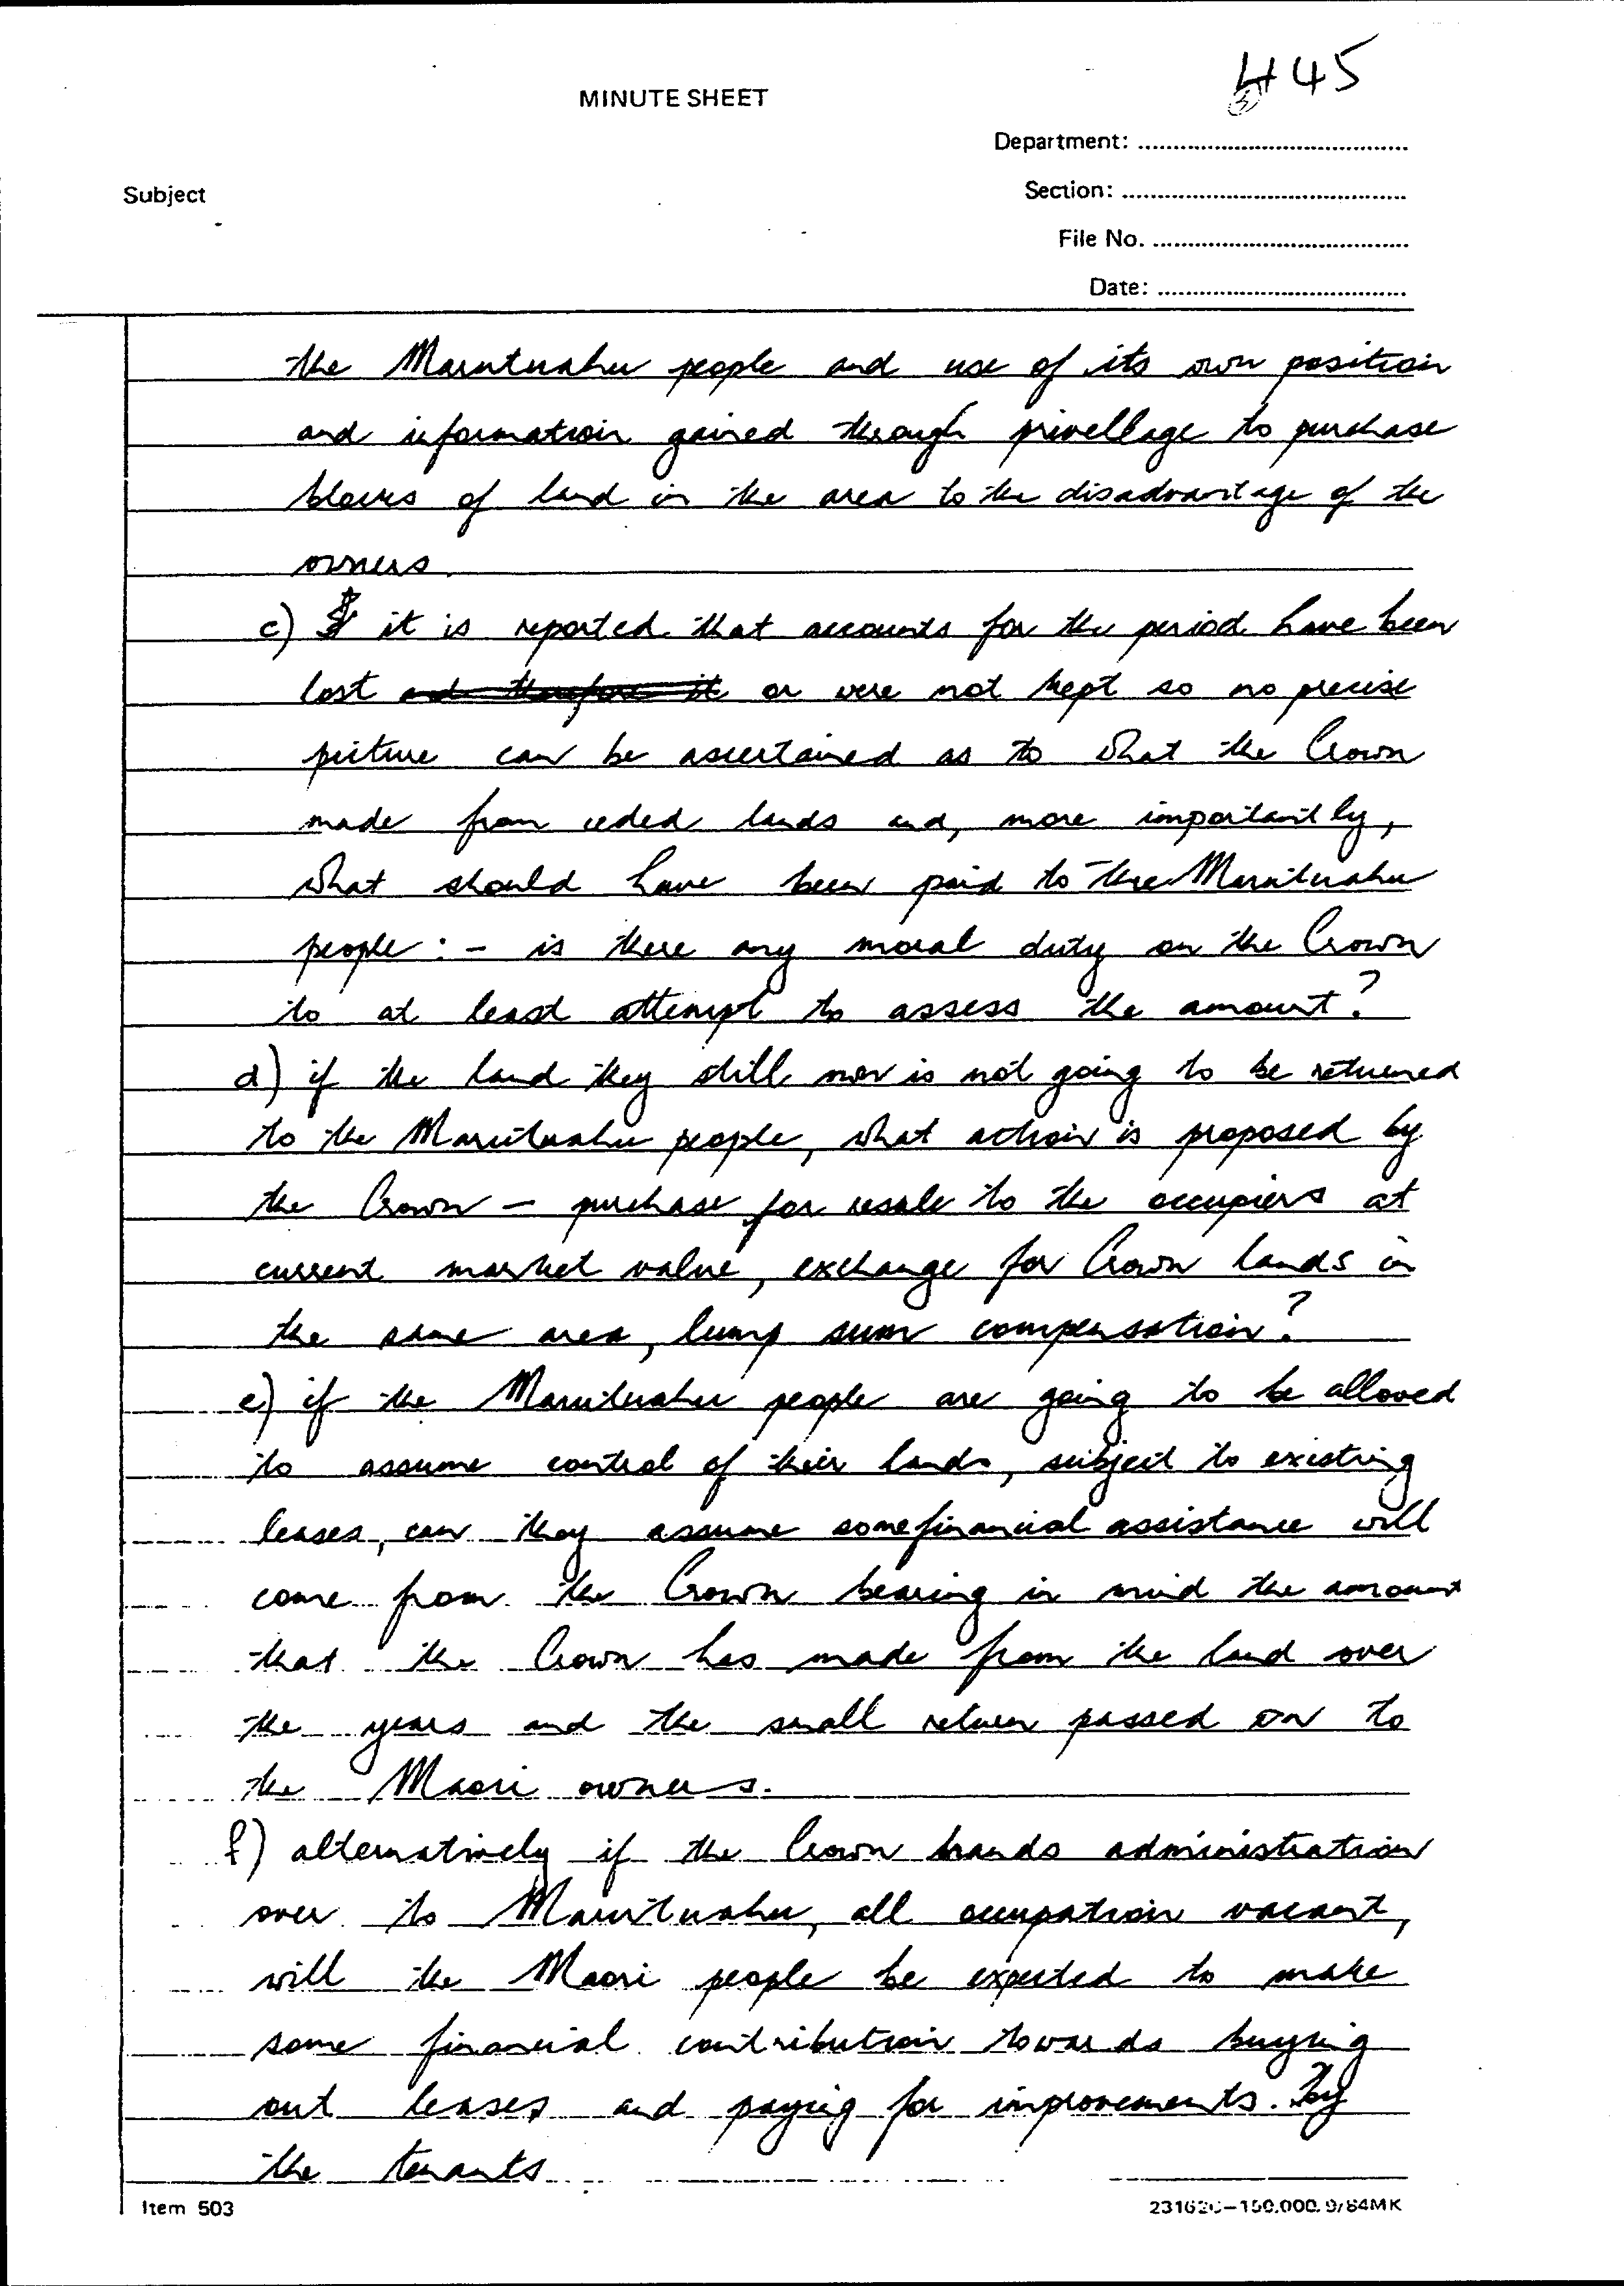 H45
3
MINUTE SHEET
Department: ........................................
Subject
Section: ..........................................
File No. ......................................
Date: .....................................
the Marutuahu people and use of its own position
and information gained through privellage to purchase
blocks of land in the area to the disadvantage of the
owners.
c) it is reported that accounts for the period have been
lost and therefore it or were not kept so no precise
picture can be ascertained as to what the Crown
made from ceded lands and, more importantly,
what should have been paid to the Marutuahu
people :- is there any moral duty on the Crown
to at least attempt to assess the amount?
d) if the land they still own is not going to be returned
to the Marutuahu people, what action is proposed by
the Crown - purchase for resale to the occupiers at
current market value, exchange for Crown lands in
the same area, lump sum compensation?
e) if the Marutuahu people are going to be allowed
to assume control of their lands, subject to existing
leases, can they assume some financial assistance will
come from the Crown bearing in mind the amount
that the Crown has made from the land over
the years and the small return passed on to
the Maori owners.
f) alternatively if the Crown hands administration
over to Marutuahu, all occupation vacant,
will the Maori people be expected to make
some financial contribution towards buying
out leases and paying for improvements. by
the tenants
Item 503
23162C–150,000.9/84MK